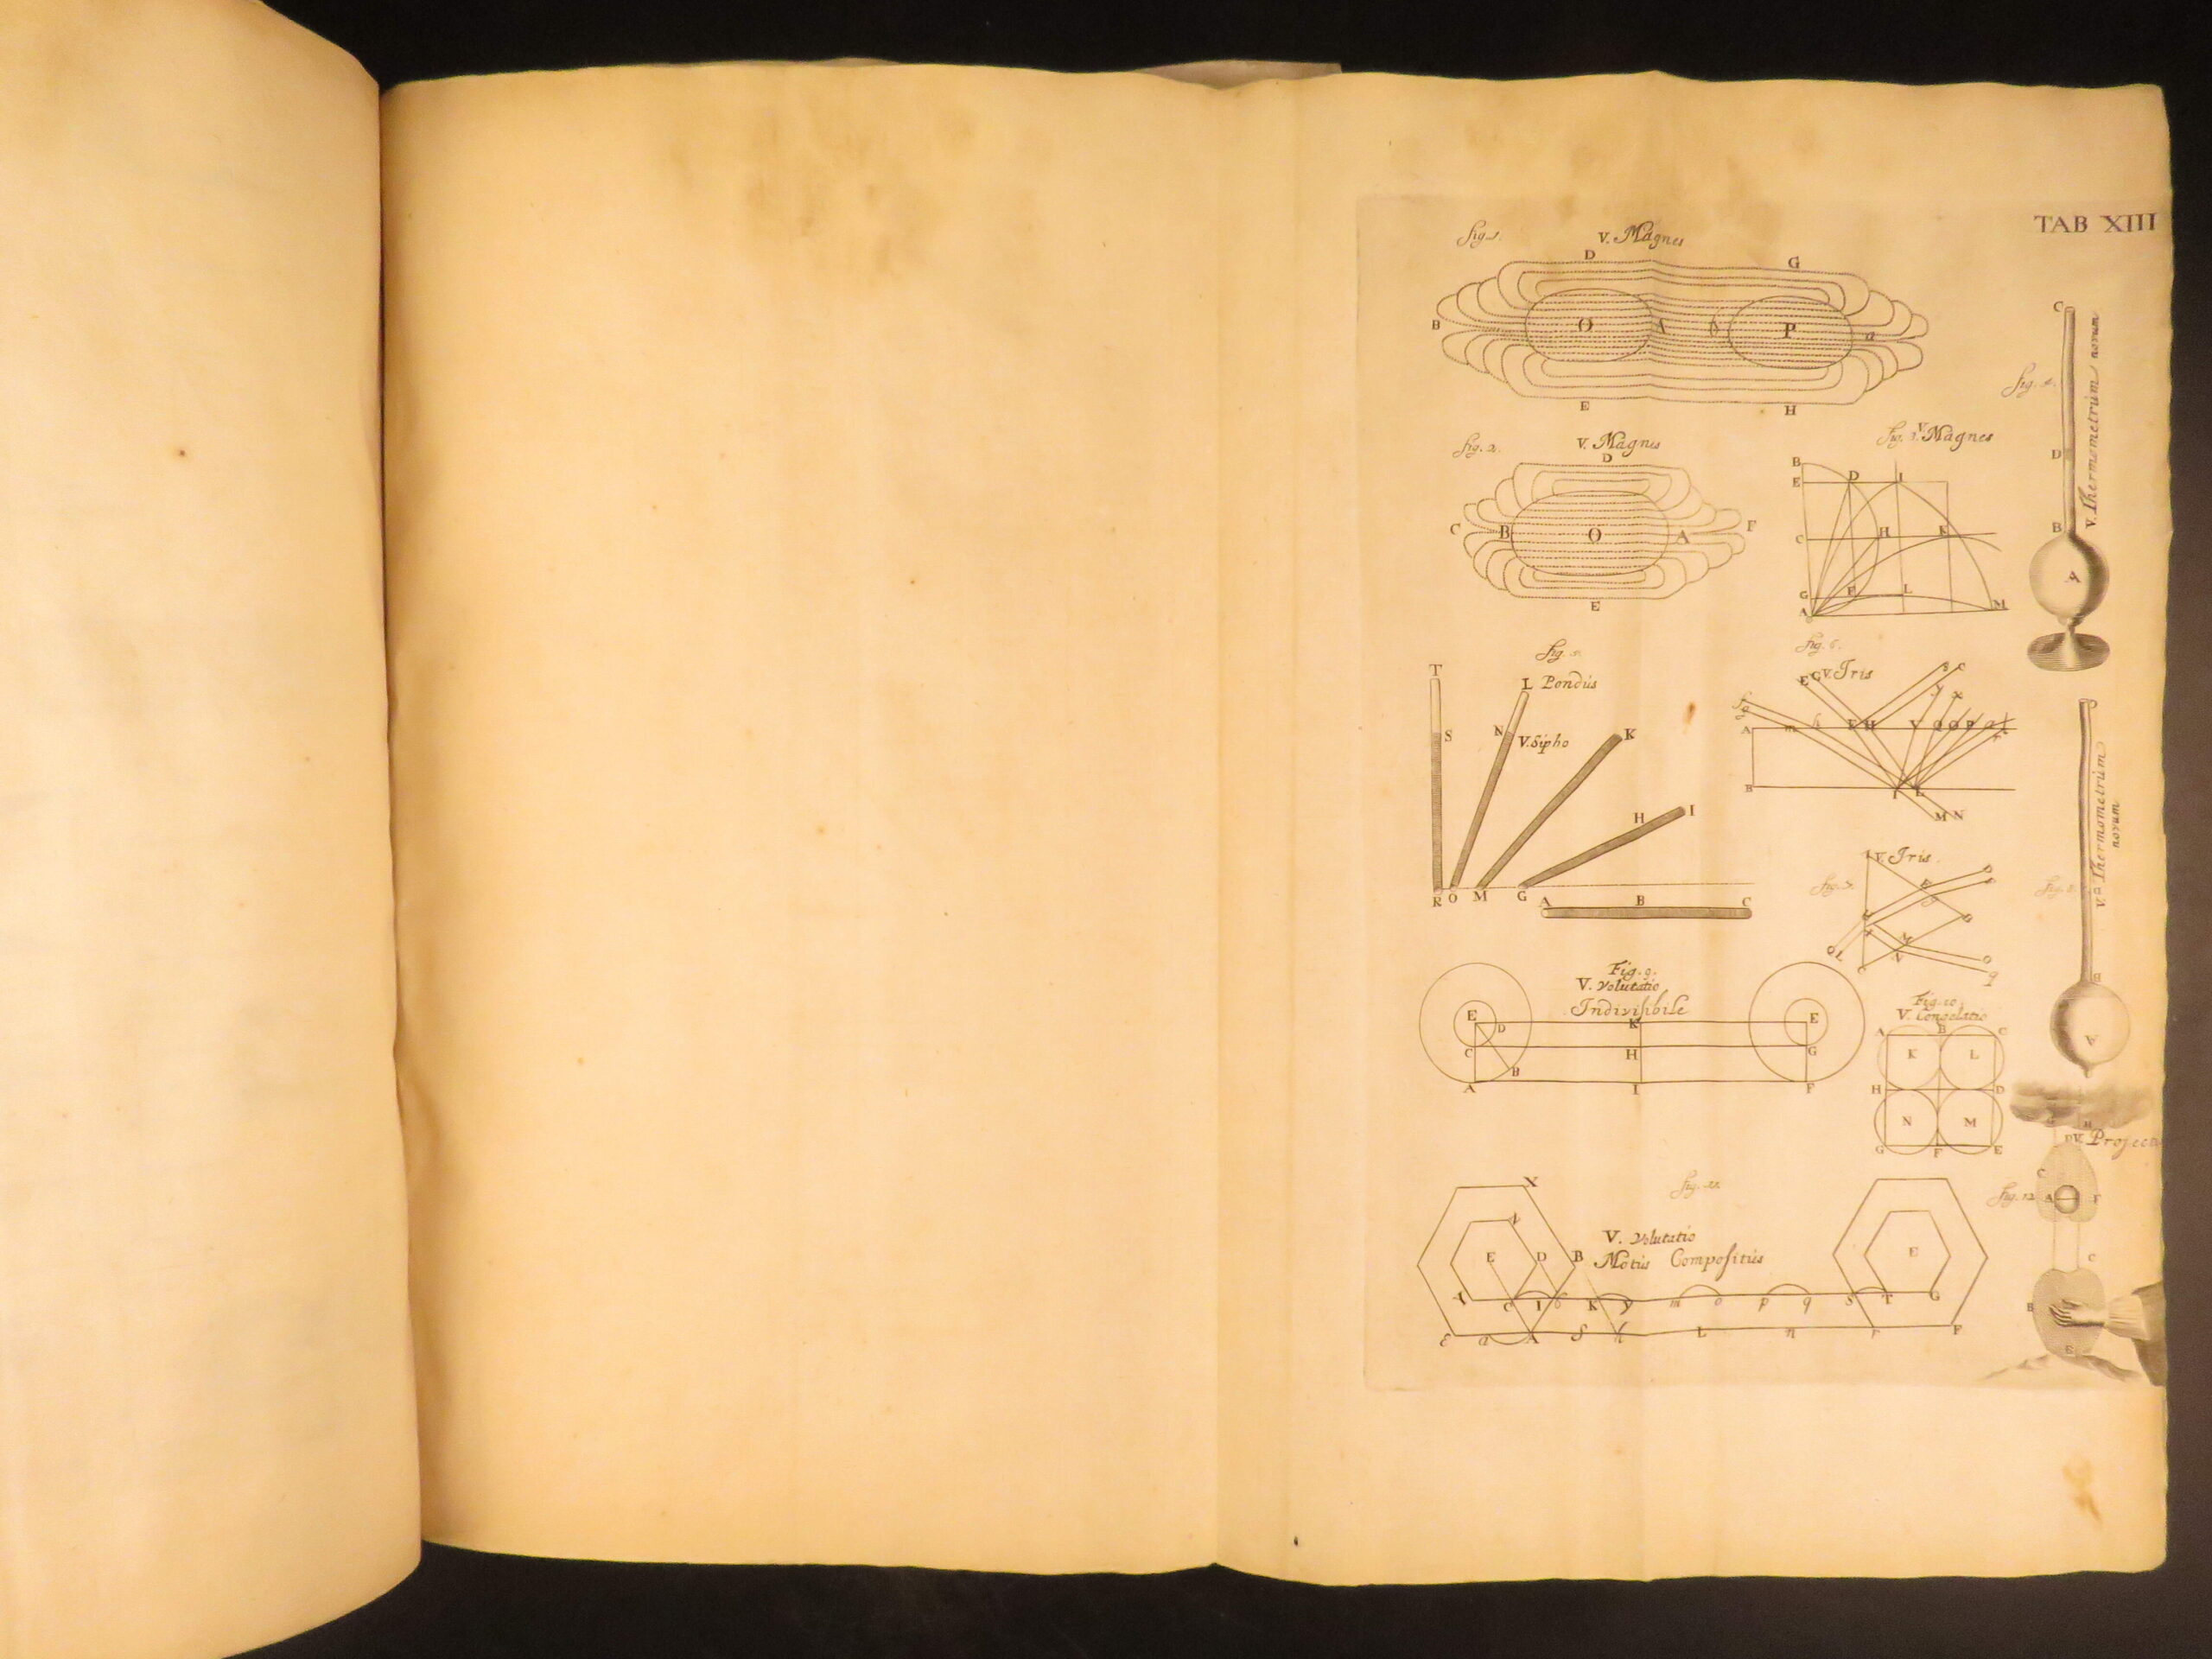 TAB XIII
fig. 1.
V. Magnes
D
G
B
O
A
b
P
a
E
H
fig. 2.
V. Magnes
D
C
B
O
A
F
E
fig. 3. V. Magnes
B
E
D
I
C
H
K
G
F
L
A
M
fig. 4.
V. Thermometrum novum
C
D
B
A
fig. 5.
Pondus
V. Sipho
T
L
S
N
K
H
I
R
O
M
G
A
B
C
fig. 6.
V. Iris
E
A
B
H
V
I
L
M
N
V. Iris
V. Thermometrum
novum
B
A
Fig. 9.
V. Volutatio
Indivisibile
E
D
K
E
C
H
G
B
A
I
F
Fig. 10.
V. Congelatio
A
B
C
K
L
H
D
N
M
G
F
E
V. Volutatio
Motus Compositus
X
E
D
B
E
C
I
K
y
m
o
p
q
S
T
G
a
A
L
n
r
F
fig. 12
C
A
C
B
E